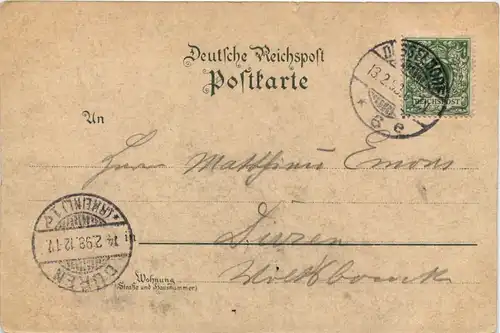 Deutsche Reichspost
Postkarte
DÜSSELDORF
13.2.98
* 6 e
REICHSPOST
An
Herrn Matthieu Emons
in
Düren
* (RHEINL.) 1 c
14.2.98.12-1 N.
DÜREN
Wohnung
(Straße und Hausnummer)